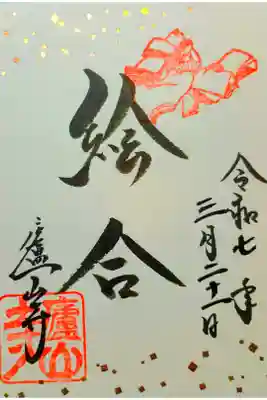 令和七年
三月二十一日
絵合
廬山寺